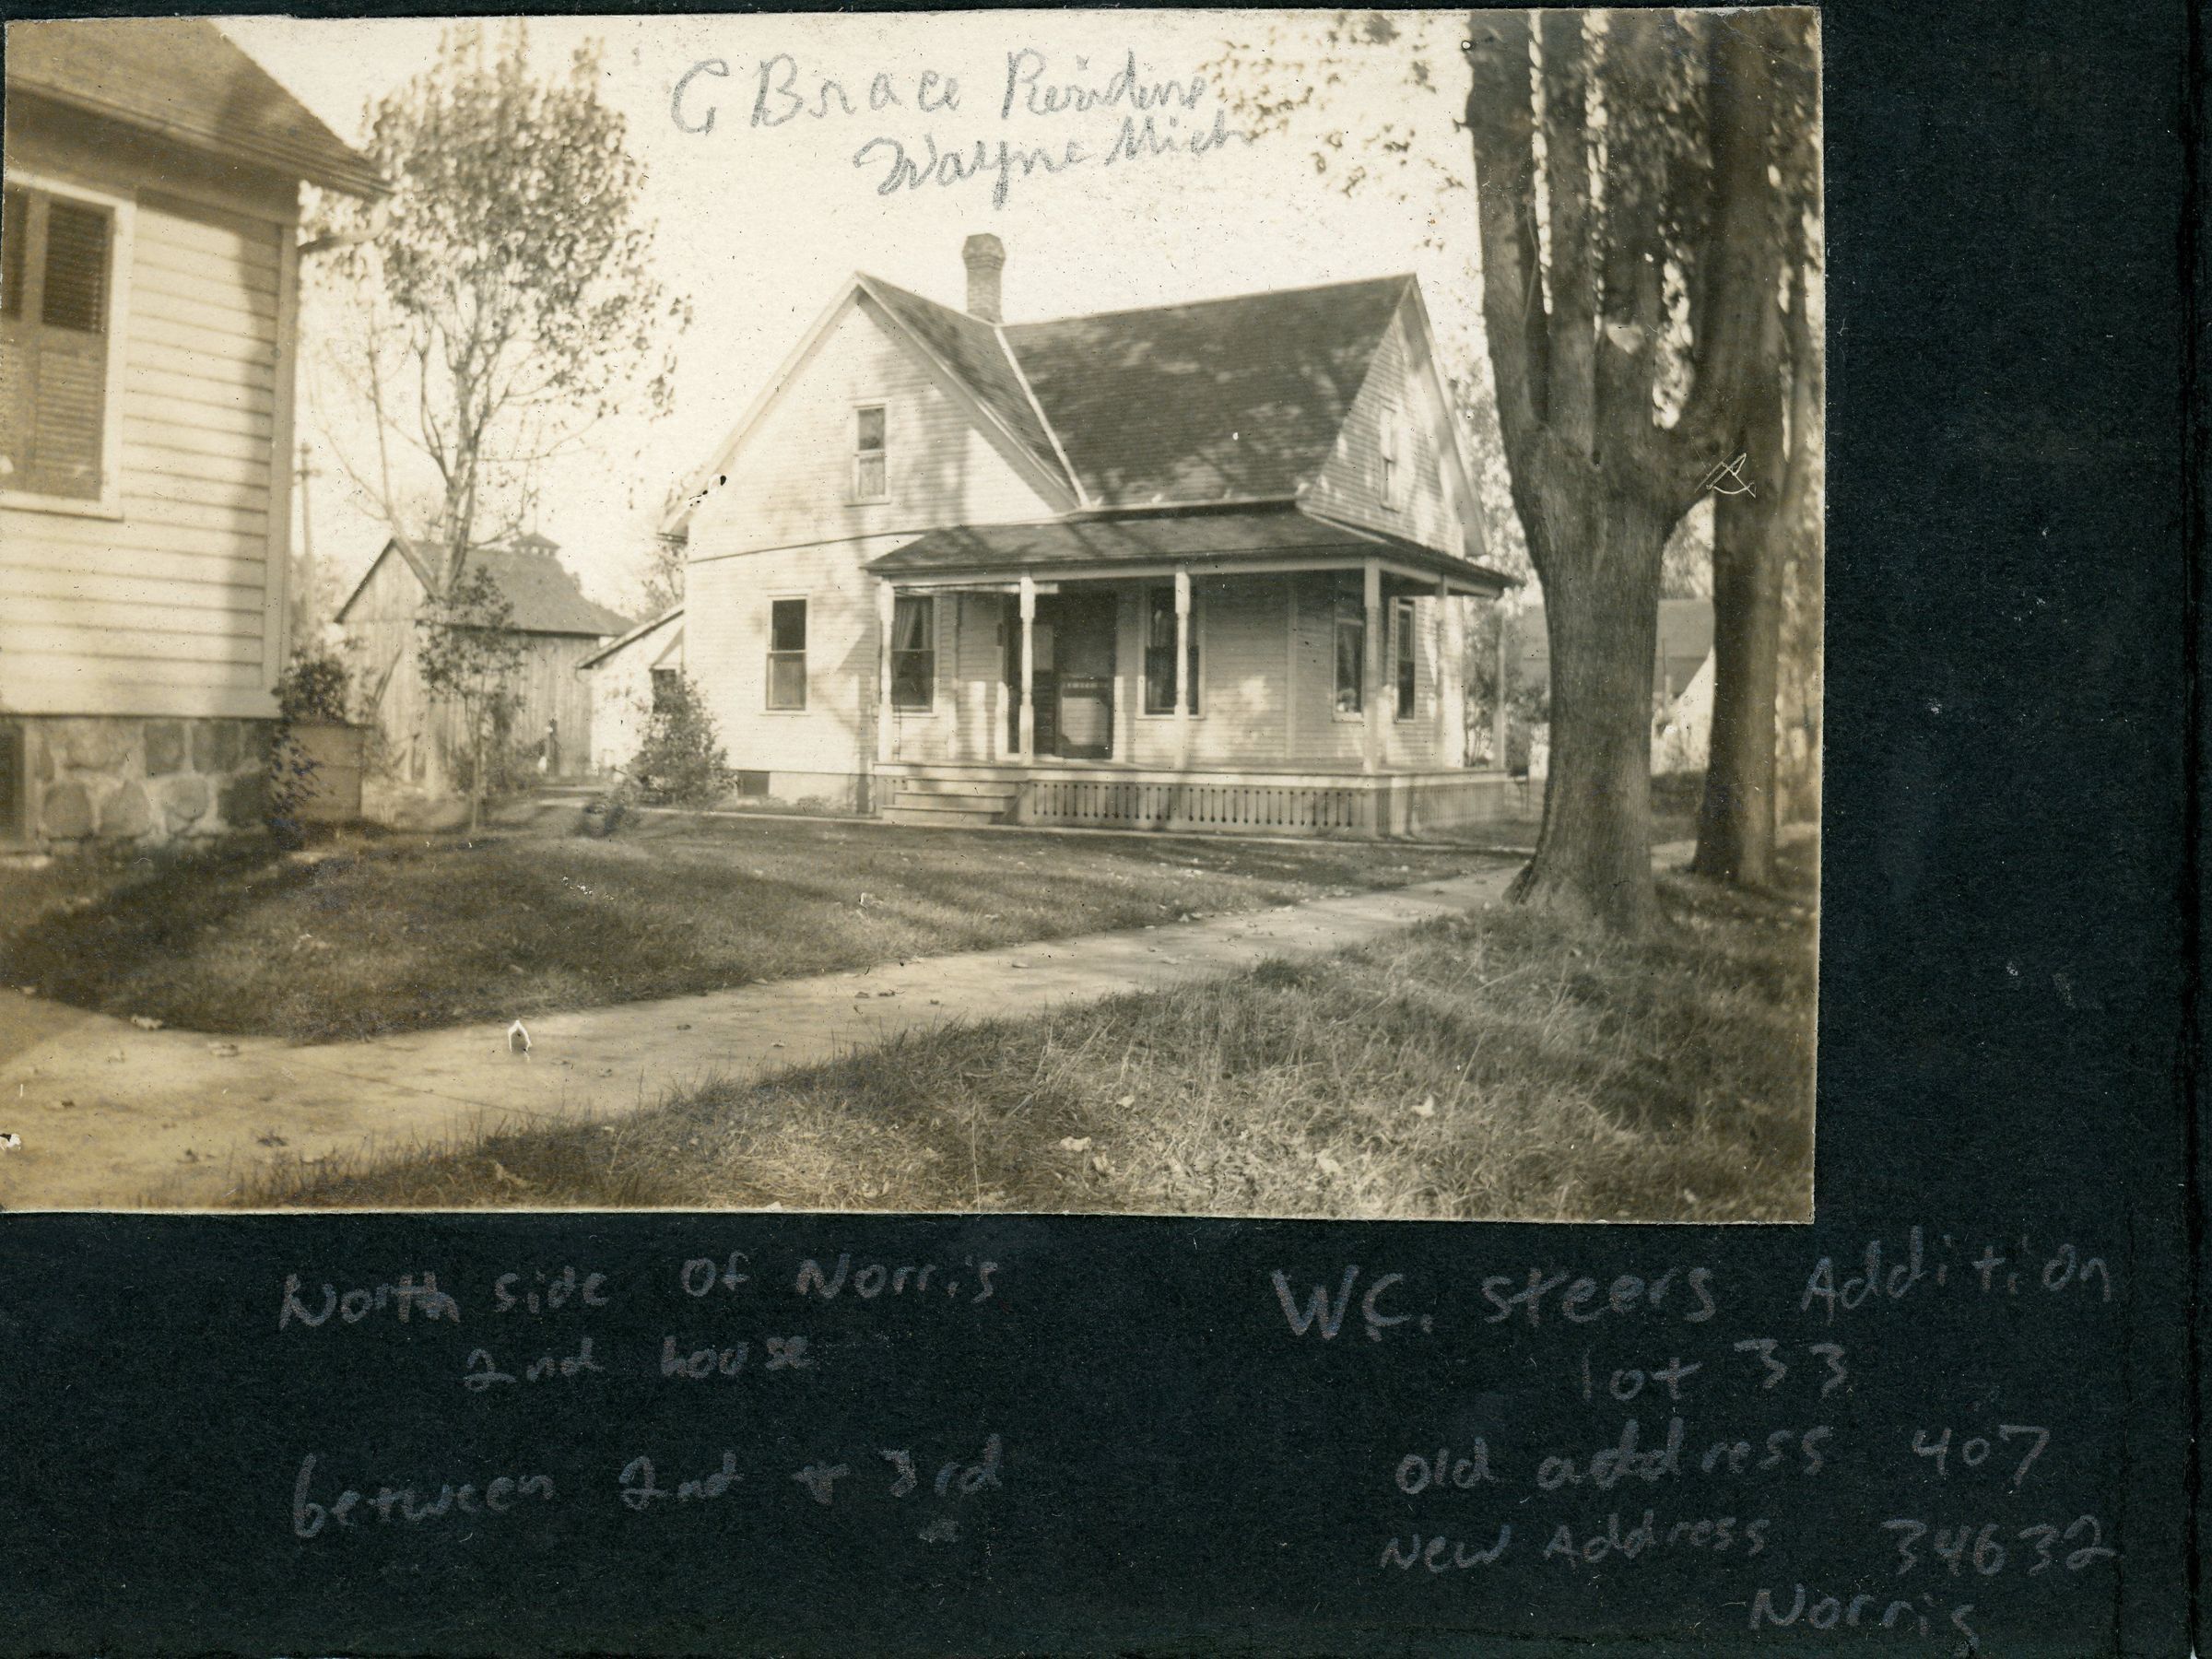 G Brace Residene
Wayne Mich
North side of Norris
2nd house
between 2nd + 3rd
W.C. steers Addition
lot 33
old address 407
New Address 34632
Norris